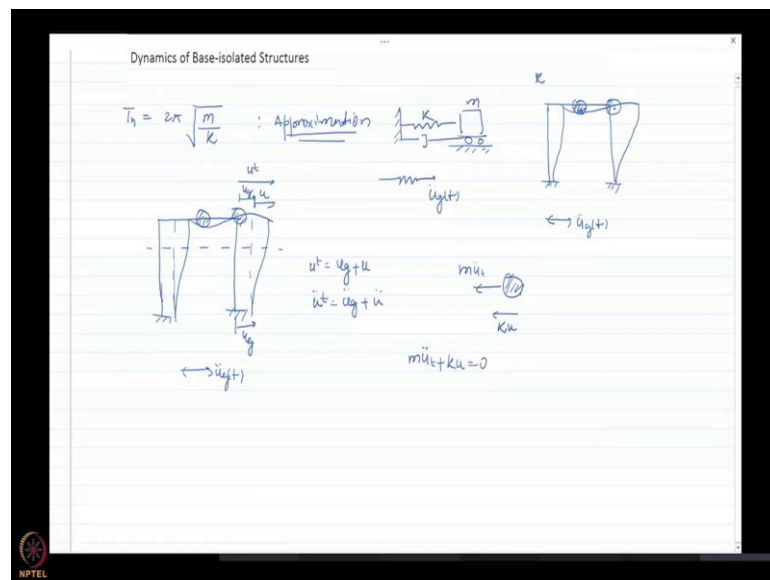 Dynamics of Base-isolated Structures
x
k
T_n = 2π √(m/k) : Approximation
k
m
ü_g(t)
u^t
u_g u
ü_g(t)
u^t = u_g + u
ü^t = ü_g + ü
mü_t
ku
u_g
ü_g(t)
mü_t + ku = 0
NPTEL